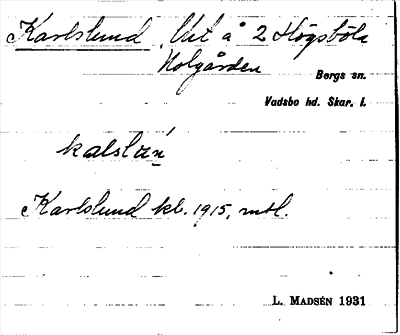 Karlslund Ut å 2 Högsböla
Holgården
Bergs sn.
Vadsbo hd. Skar. l.
kalslùn
Karlslund kb. 1915, mtl.
L. MADSÉN 1931